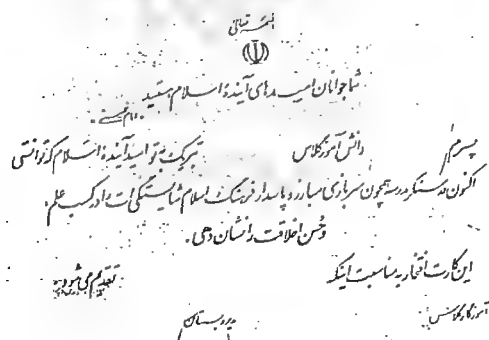 بسمه تعالی
شما جوانان امیدهای آیندهٔ اسلام هستید
امام خمینی
پسرم دانش آموز کلاس تبریک به تو امید آیندهٔ اسلام که توانستی
اکنون در سنگر مدرسه همچون سربازی مبارز و پاسدار فرهنگ اسلام شایستگی ات را در کسب علم
و حسن اخلاقت را نشان دهی.
این کارت افتخار به مناسبت اینکه تقدیم می شود
آموزگار کلاس مدیر دبستان